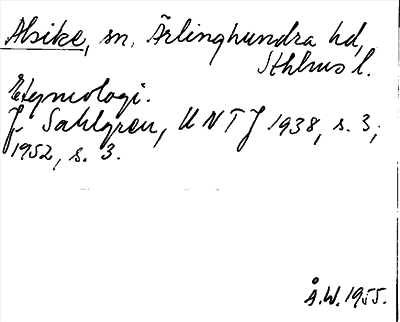 Alsike, sn, Ärlinghundra hd,
Sthlms l.
Etymologi.
J. Sahlgren, UNTJ 1938, s. 3;
1952, s. 3.
Å.W. 1955.